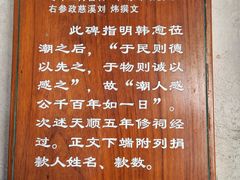 右参政慈溪刘 炜撰文
此碑指明韩愈莅
潮之后，“于民则德
以先之，于物则诚以
感之”，故“潮人感
公千百年如一日”。
次述天顺五年修祠经
过。正文下端附列捐
款人姓名、款数。